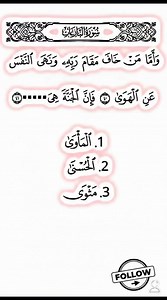 سُورَةُ النَّازِعَاتِ
وَأَمَّا مَنْ خَافَ مَقَامَ رَبِّهِۦ وَنَهَى ٱلنَّفْسَ
عَنِ ٱلْهَوَىٰ ٤٠ فَإِنَّ ٱلْجَنَّةَ هِىَ..... ٤١
1. ٱلْمَأْوَىٰ
2. ٱلْحُسْنَىٰ
3. مَثْوَى
FOLLOW